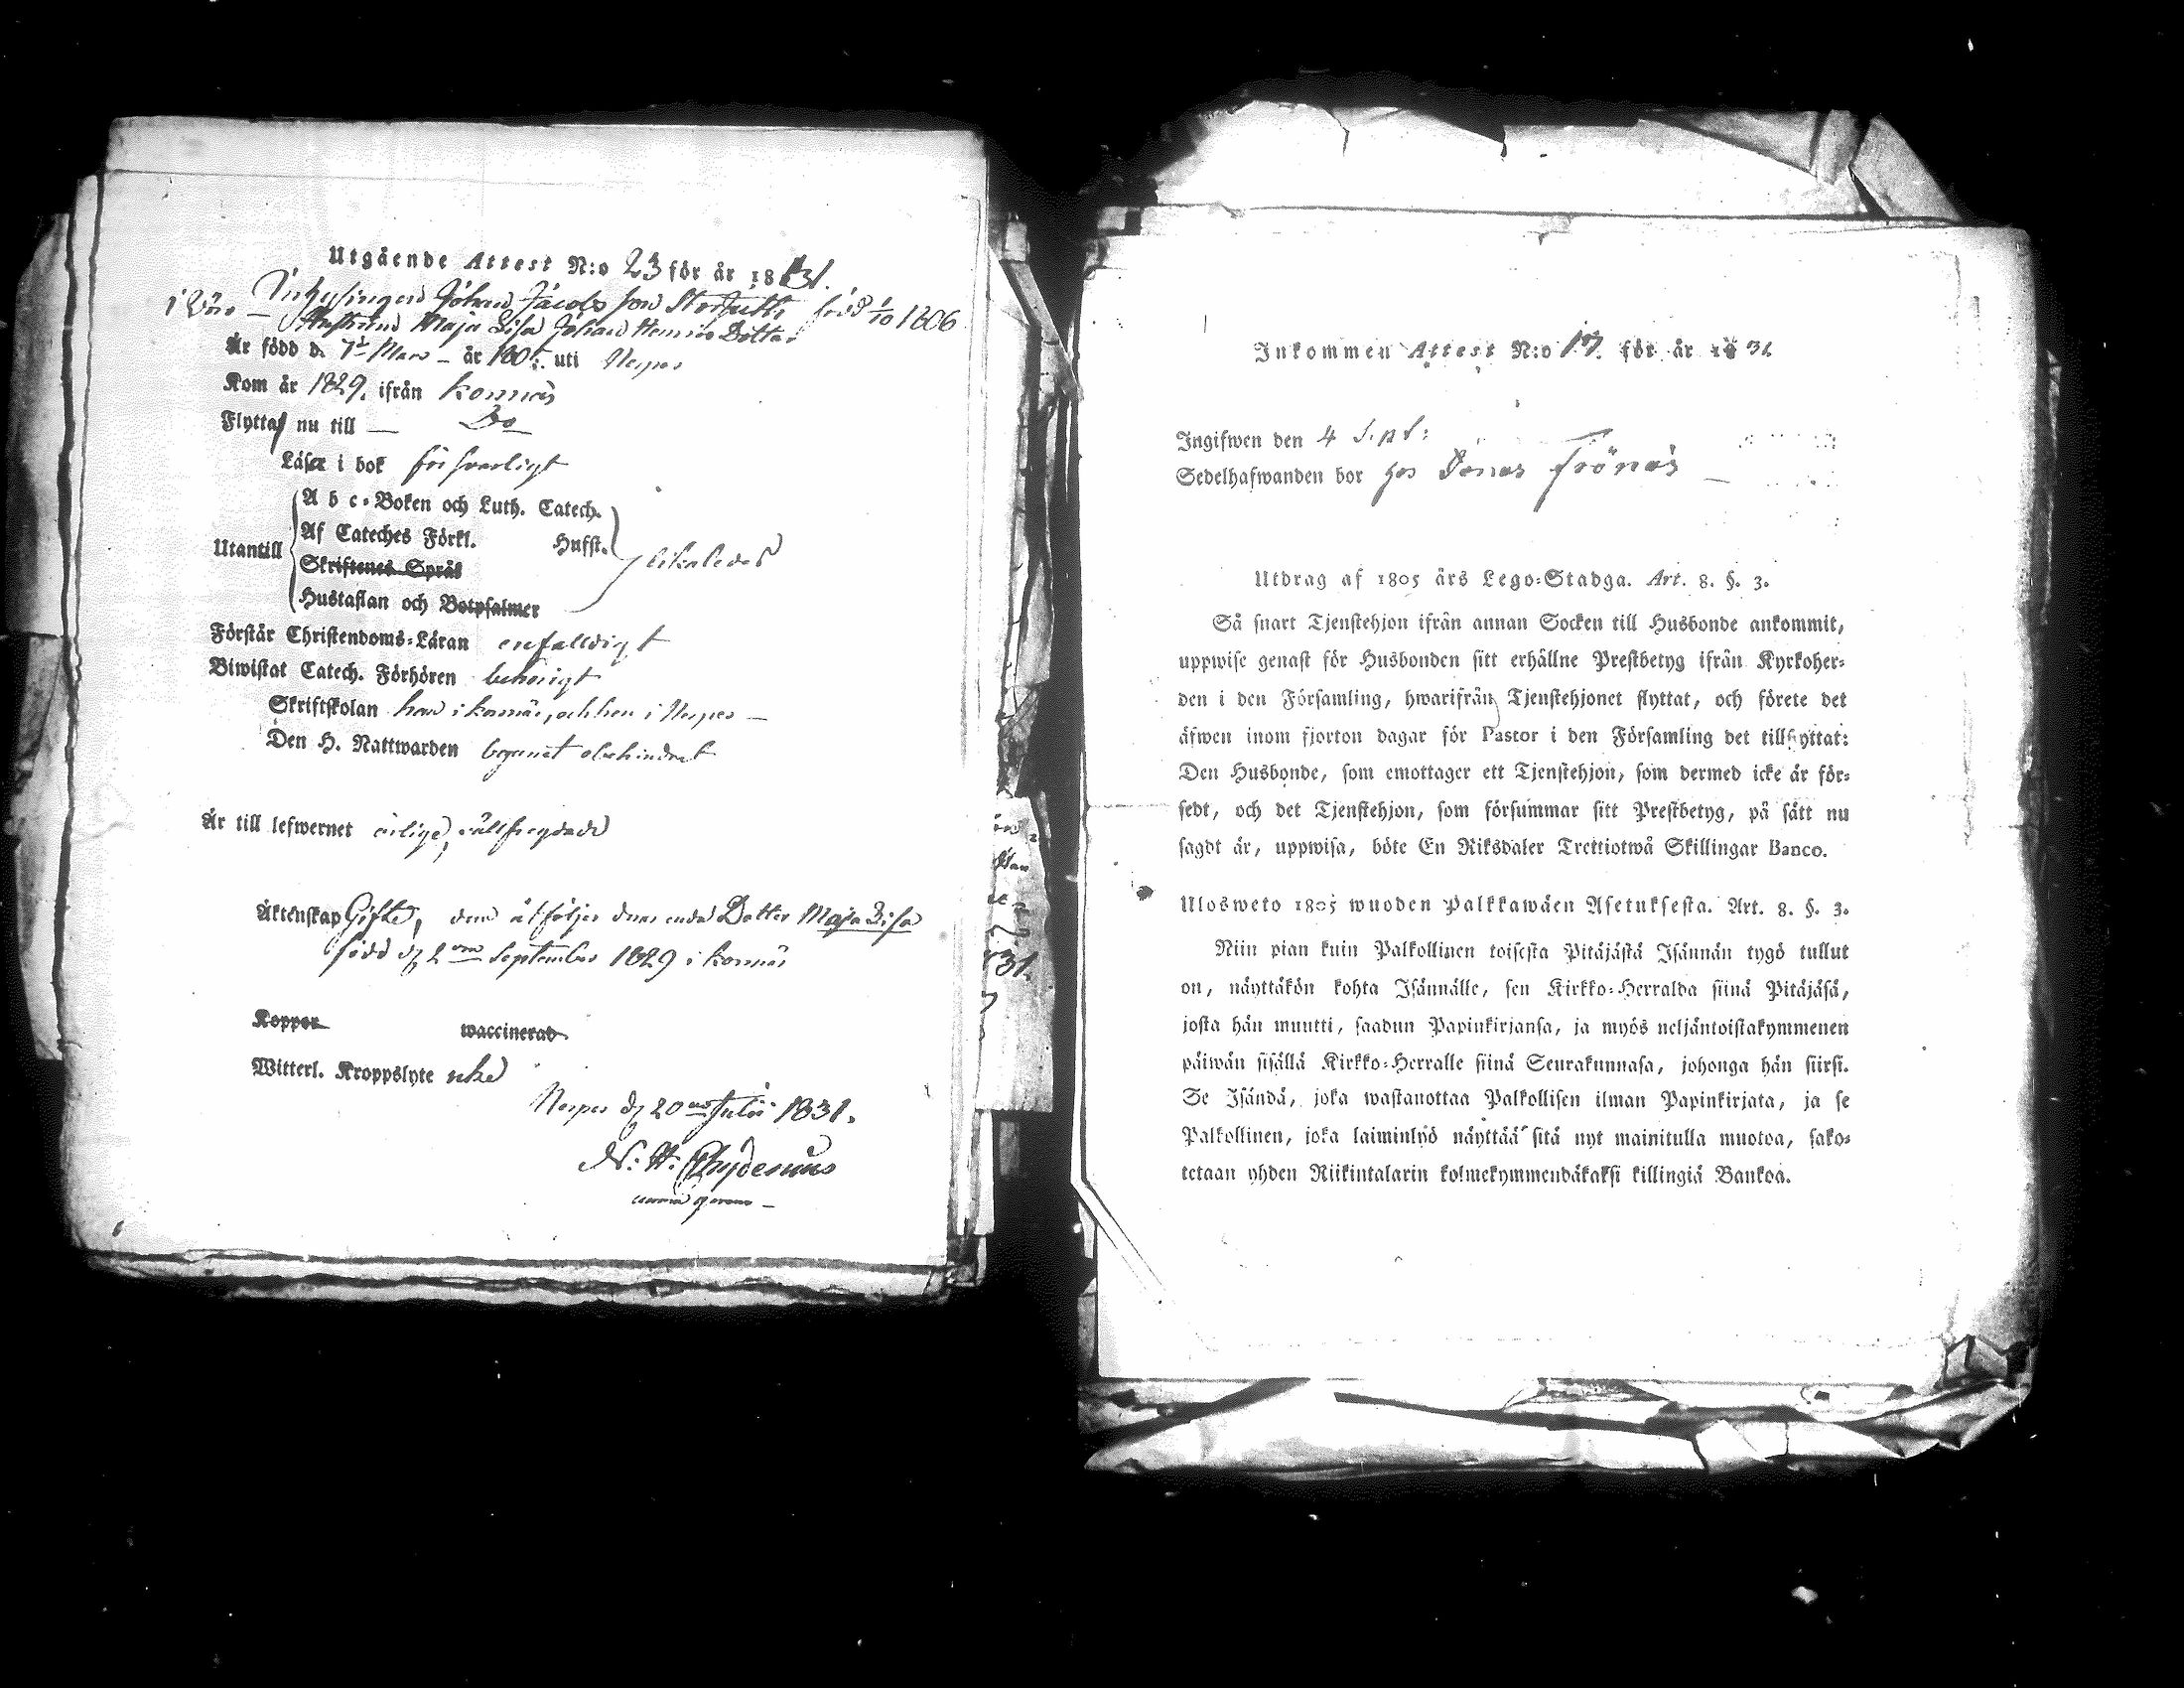 Utgående Attest N:o 23 för år 1831.
Inhysingen Johan Jacobsson född 1/10 1806
i Wörå — Hustrun Maja Lisa Johan Henrics Dotter
Är född d. 7de Mars — år 180 uti Nerpes
Kom år 1829. ifrån Korsnäs
Flytta nu till — Do
Läser i bok försvarligt
Utantill
A b c-Boken och Luth. Catech.
Af Cateches Förkl. Hufst.
Skriftenes Språk
Hustaflan och Botpsalmer
likaledes
Förstår Christendoms-Läran enfaldigt
Biwistat Catech. Förhören behörigt
Skriftskolan han i Korsnäs, och hon i Nerpes —
Den H. Nattwarden begånet obehindrat
Är till lefwernet ärlige, välfregdade
Äktenskap Gifte, dem åtföljer deras enda Dotter Maja Lisa
född d. 2 September 1829 i Korsnäs
Koppor waccinerad
Witterl. Kroppslyte
Nerpes d. 20 Julii 1831.
N: H: Chydenius
Inkommen Attest N:o 17. för år 1831
Ingifwen den 4 Sept:
Sedelhafwanden bor hos Jonas Frönäs —
Utdrag af 1805 års Lego-Stadga. Art. 8. §. 3.
Så snart Tjenstehjon ifrån annan Socken till Husbonde ankommit,
uppwise genast för Husbonden sitt erhållne Prestbetyg ifrån Kyrkoher-
den i den Församling, hwarifrån Tjenstehjonet flyttat, och förete det
äfwen inom fjorton dagar för Pastor i den Församling det tillflyttat:
Den Husbonde, som emottager ett Tjenstehjon, som dermed icke är för-
sedt, och det Tjenstehjon, som försummar sitt Prestbetyg, på sätt nu
sagdt är, uppwisa, böte En Riksdaler Trettiotwå Skillingar Banco.
Ulosweto 1805 wuoden Palkkawäen Asetuksesta. Art. 8. §. 3.
Niin pian kuin Palkollinen toisesta Pitäjästä Isännän tygö tullut
on, näyttäkön kohta Isännälle, sen Kirkko-Herralda siinä Pitäjäsä,
josta hän muutti, saadun Papinkirjansa, ja myös neljäntoistakymmenen
päiwän sisällä Kirkko-Herralle siinä Seurakunnasa, johonga hän siirsi.
Se Isändä, joka wastanottaa Palkollisen ilman Papinkirjata, ja se
Palkollinen, joka laiminlyö näyttää sitä nyt mainitulla muotoa, sako-
tetaan yhden Riikintalarin kolmekymmendäkaksi killingiä Bankoa.